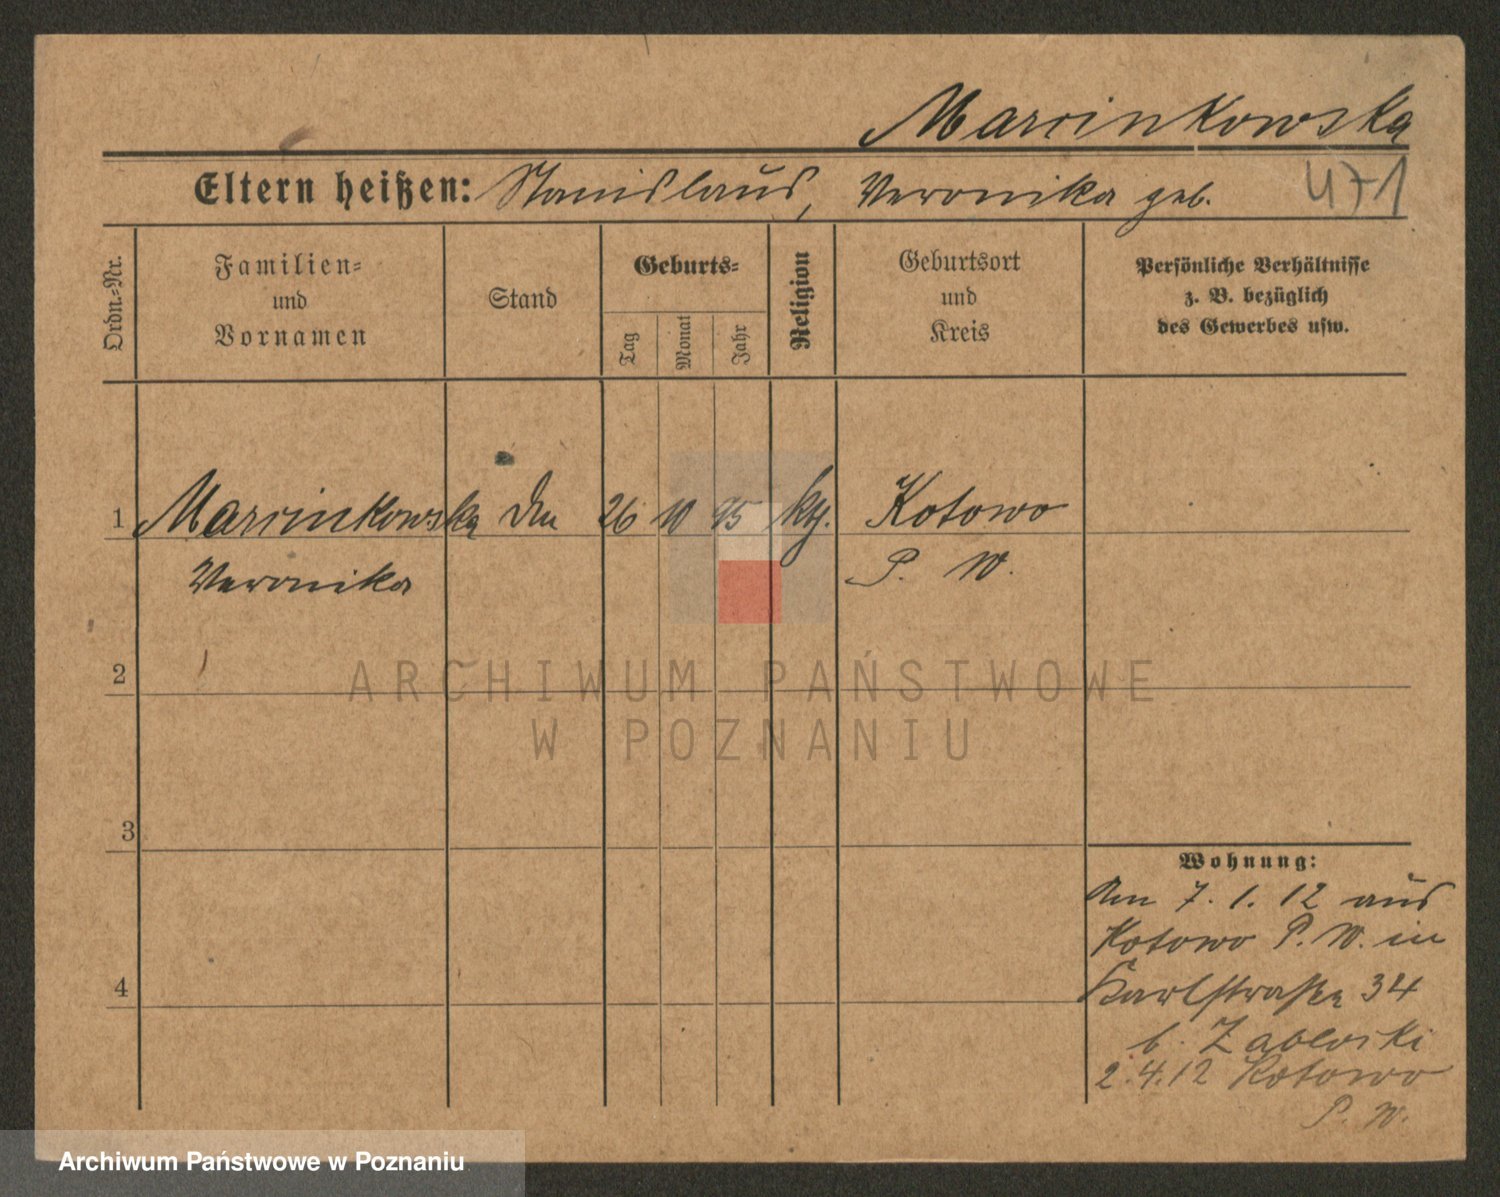 Marcinkowska
Eltern heißen: Stanislaus, Veronika geb.
471
Ordn.=Nr.
Familien=
und
Vornamen
Stand
Geburts=
Tag
Monat
Jahr
Religion
Geburtsort
und
Kreis
Persönliche Verhältnisse
z. B. bezüglich
des Gewerbes usw.
1 Marcinkowska 26 10 95 Kotowo
Veronika P. W.
2
3
4
Wohnung:
Am 7. 1. 12 aus
Kotowo P. W. in
Karlstraße 34
b.
2.4.12 Kotowo
P. W.
ARCHIWUM PAŃSTWOWE
W POZNANIU
Archiwum Państwowe w Poznaniu